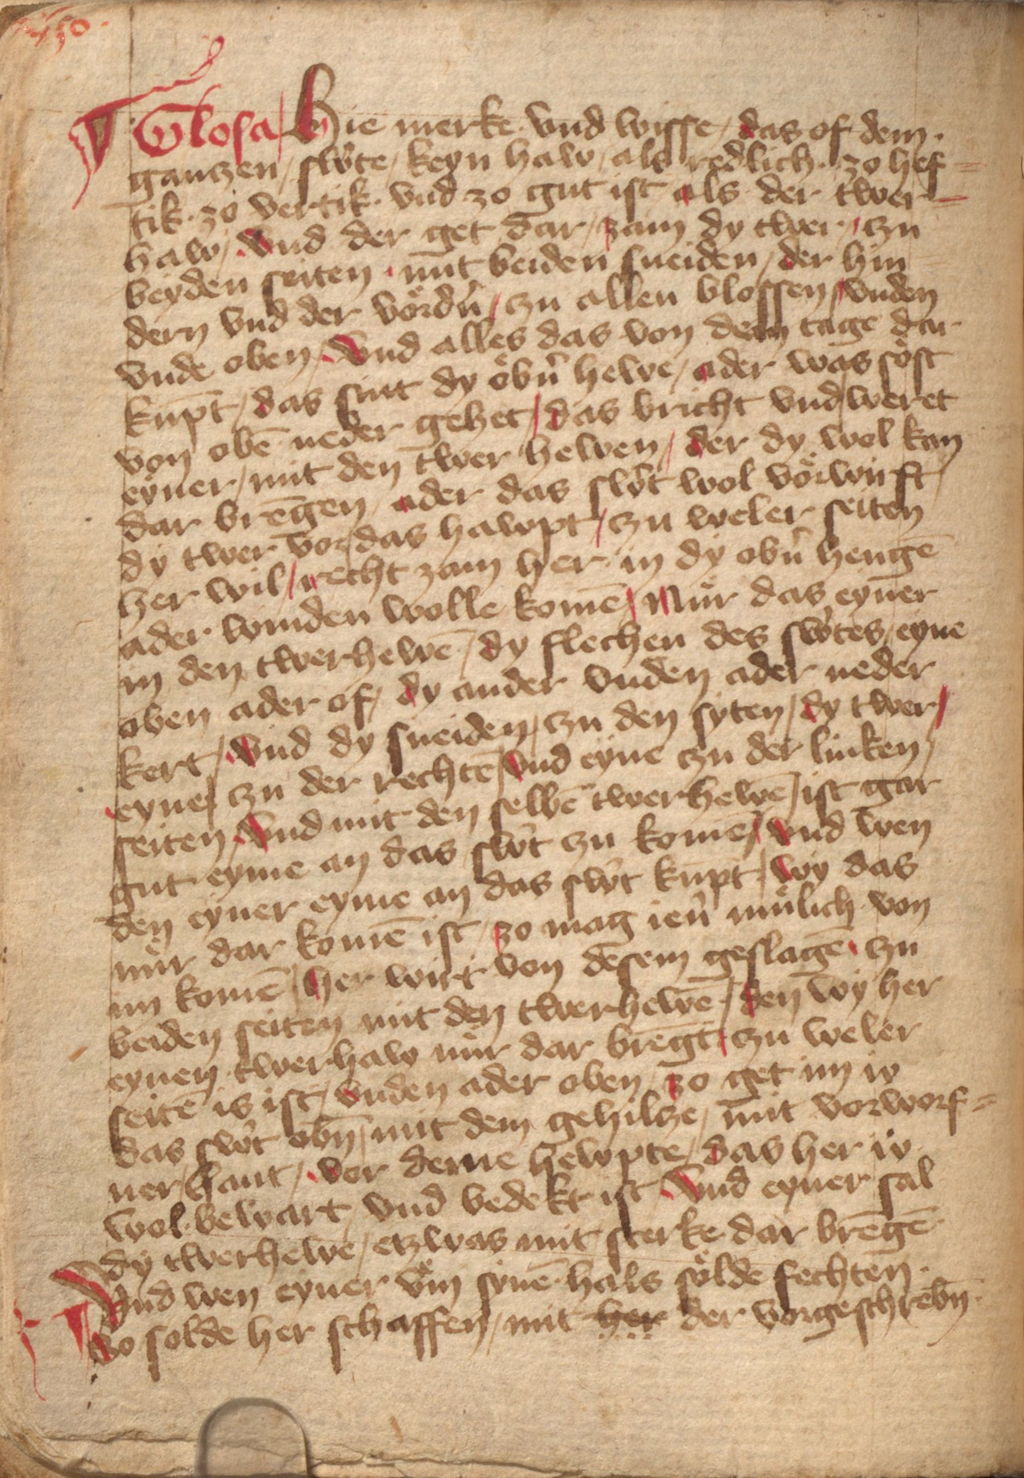 Glosa Hie merke und wisse / das of dem
ganczen / sw̉te / keyn haw / als redlich · zo hef=
tik · zo vertik · vnd zo gut ist als der twer=
haw / Vnd der get dar / zam dy twer / zu
beyden seiten · mit beiden sneiden / der hin
dern vnd der võdern̄ / zu allen blossen / vnden
vnde oben / Vnd alles das von dem tage dar
kũpt / das sint dy öbñ hewe / ader was söst
von obē neder gehet / das bricht vnd weret
eyner / mit den twer hewen / der dy wol kan
dar brēgen / ader das sw̉t wol vörwirft
dy twer vor das hawpt / zu weler seiten
her wil / recht zam her in dy obñ hengē
ader winden wolle komē / Nur das eyner
in den twerhewē / dy flechen des sw̉tes / eyne
oben ader of / dy ander vnden ader neder
kert / vnd dy sneiden / zu den syten / dy twer /
eyne / zu der rechtē / vnd eyne zu der linken /
seiten / Vnd mit den selbē twerhewē / ist gar
gut eyme an das sw̉t zu komē / vnd wen
den eyner eyme an das sw̉t kũpt / wy das
nür dar komē ist / zo mag ienñ mülich von
im komē / her wirt von desem geslagē · zu
beiden seiten mit den twerhewē / den wy her
eynen twerhaw nür dar brēgt / zu weler
seitē is ist / vnden ader oben / zo get im io
das sw̉t obñ / mit dem gehilcze / mit vorworf=
ner hant / vor deme hewpte / das her io
wol bewart / vnd bedekt ist / Vnd eyner sal
dy twerhewē / etzwas mit sterke dar brēgē
Vnd wen eyner vm synē hals sölde fechten
so solde her schaffen / mit her der vorgeschrebñ ·